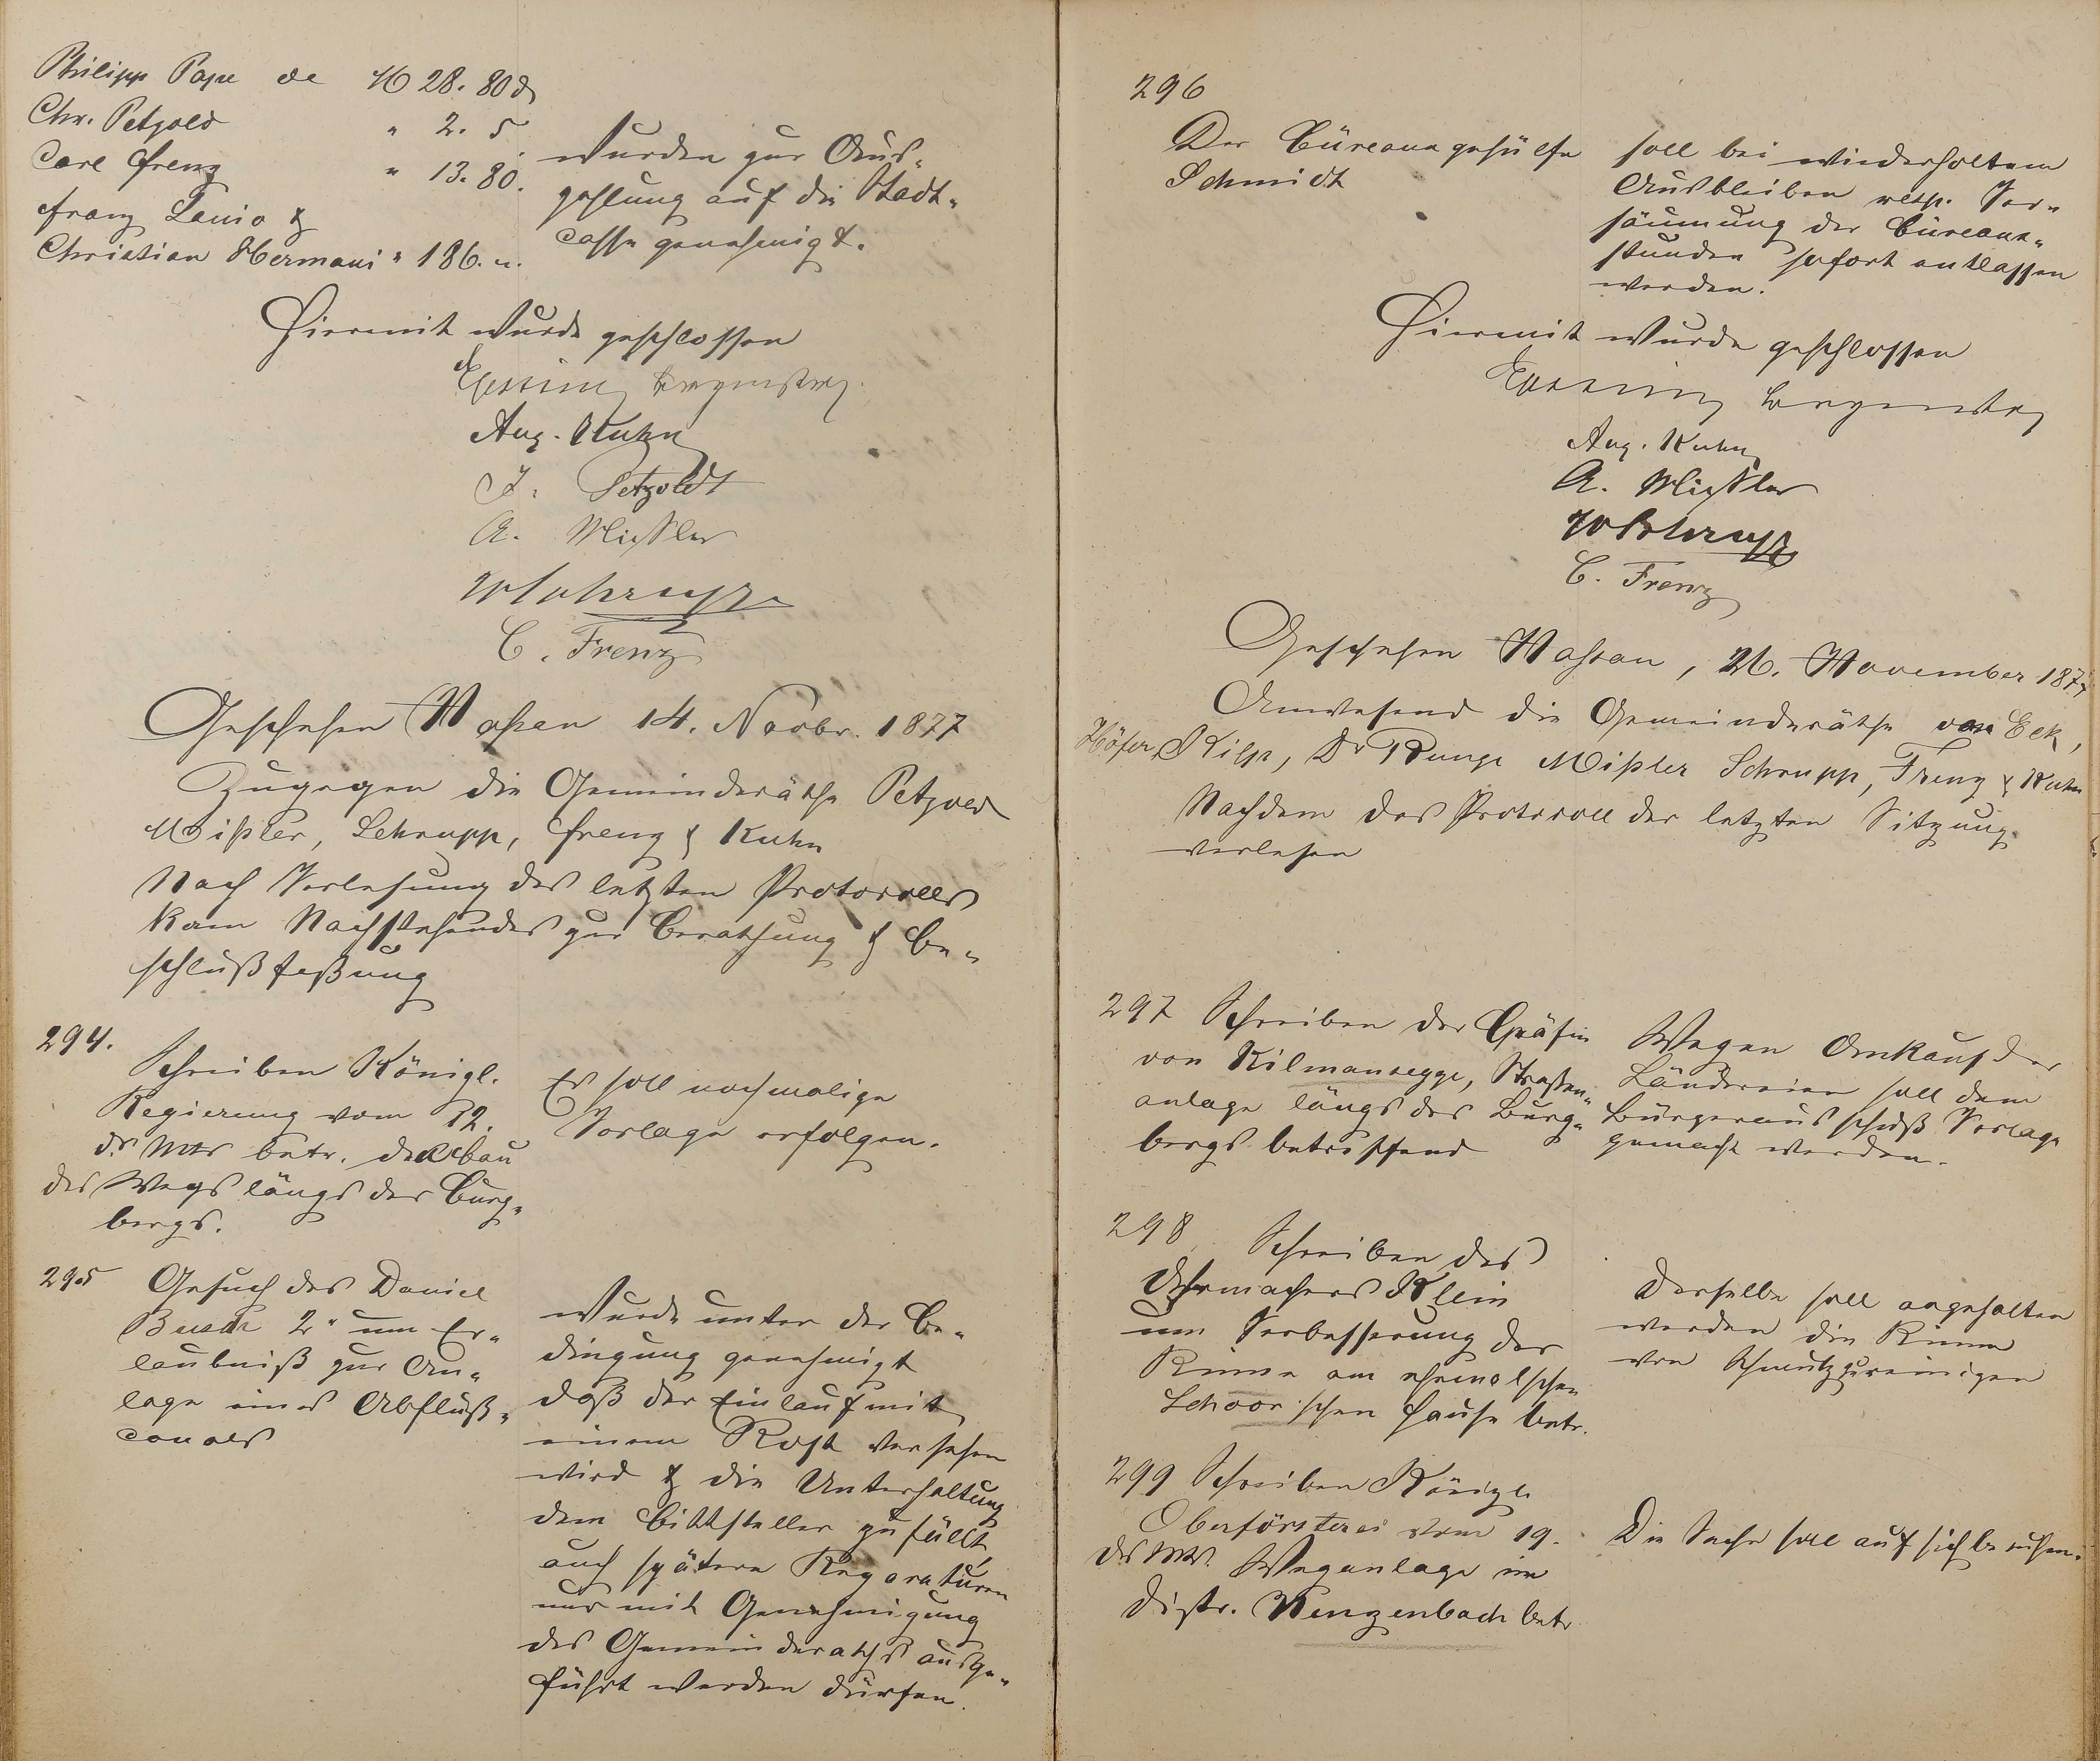 Philipp Pape de M 28. 80 ₰
Chr. Petzold " 2. 5
Carl Frenz " 13. 80.
Franz Lanio &
Christian Hermani " 186. "
wurden zur Aus-
zahlung auf die Stadt-
casse genehmigt.
Hiermit wurde geschlossen
Aug. Kuhn
J. Petzoldt
A. Mißler
C. Frenz
Geschehen Nassau 14. Novbr. 1877
Zugegen die Gemeinderäthe Petzold
Mißler, Schrupp, Frenz & Kuhn
Nach Verlesung des letzten Protocolls
kam Nachstehendes zur Berathung & Be-
schlußfaßung
294.
Schreiben Königl.
Regierung vom 12.
ds Mts betr. den Bau
des Wegs längs des Burg-
bergs.
Es soll nochmalige
Vorlage erfolgen.
295 Gesuch des Daniel
Busch 2r um Er-
laubniß zur An-
lage eines Abfluß-
canals
wurde unter der Be-
dingung genehmigt
daß der Einlauf mit
einem Rost versehen
wird & die Unterhaltung
dem Bittsteller zufällt,
auch spätere Reparaturen
nur mit Genehmigung
des Gemeinderaths ausge-
führt werden dürfen.
296
Der Büreaugehülfe
Schmidt
soll bei wiederholtem
Ausbleiben resp. Ver-
säumung der Büreau-
stunden sofort entlassen
werden.
Hiermit wurde geschlossen
Aug. Kuhn
A. Mißler
C. Frenz
Geschehen Nassau, 26. November 1877
Anwesend die Gemeinderäthe von Eck,
Höfer, Kilp, Dr Runge Mißler Schrupp, Frenz & Kuhn
Nachdem das Protocoll der letzten Sitzung
verlesen
297 Schreiben der Gräfin
von Kilmansegge, Straßen-
anlage längs des Burg-
bergs betreffend
Wegen Ankauf der
Ländereien soll dem
Bürgerausschuß Vorlage
gemacht werden.
298 Schreiben des
Uhrmachers Klein
um Verbesserung der
Rinne am ehemalschen
Schoor'schen Hause betr.
Derselbe soll angehalten
werden die Rinne
von Schmutz zu reinigen
299 Schreiben Königl.
Oberförsterei vom 19.
ds Mts. Weganlage im
Distr. Kengenbach betr
Die Sache soll auf sich beruhen.